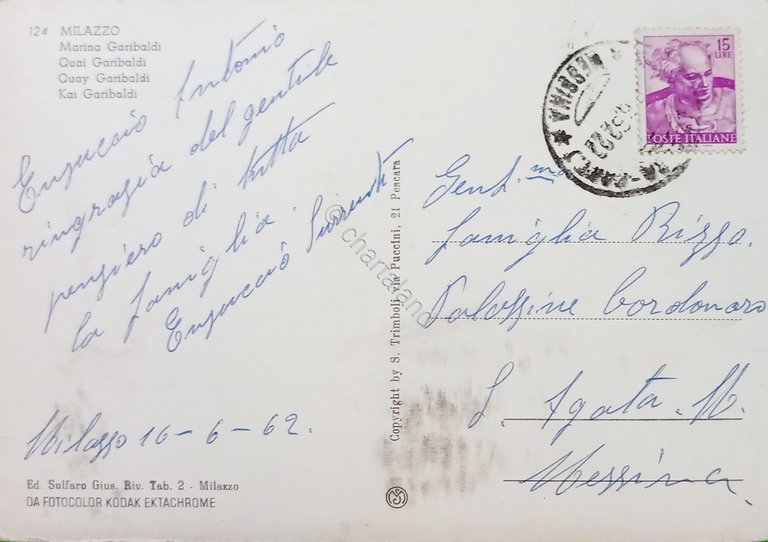 124 MILAZZO
Marina Garibaldi
Quai Garibaldi
Quay Garibaldi
Kai Garibaldi
Antonio
ringrazia del gentile
pensiero di tutta
la famiglia.
Milazzo 16-6-62.
Ed. Sulfaro Gius. Riv. Tab. 2 - Milazzo
DA FOTOCOLOR KODAK EKTACHROME
Copyright by S. Trimboli, via Puccini, 21 Pescara
© chartaland
MESSINA
15
LIRE
POSTE ITALIANE
Gent.ma
famiglia Rizzo.
Palazzine Cordonaro
S. Agata. M.
Messina.